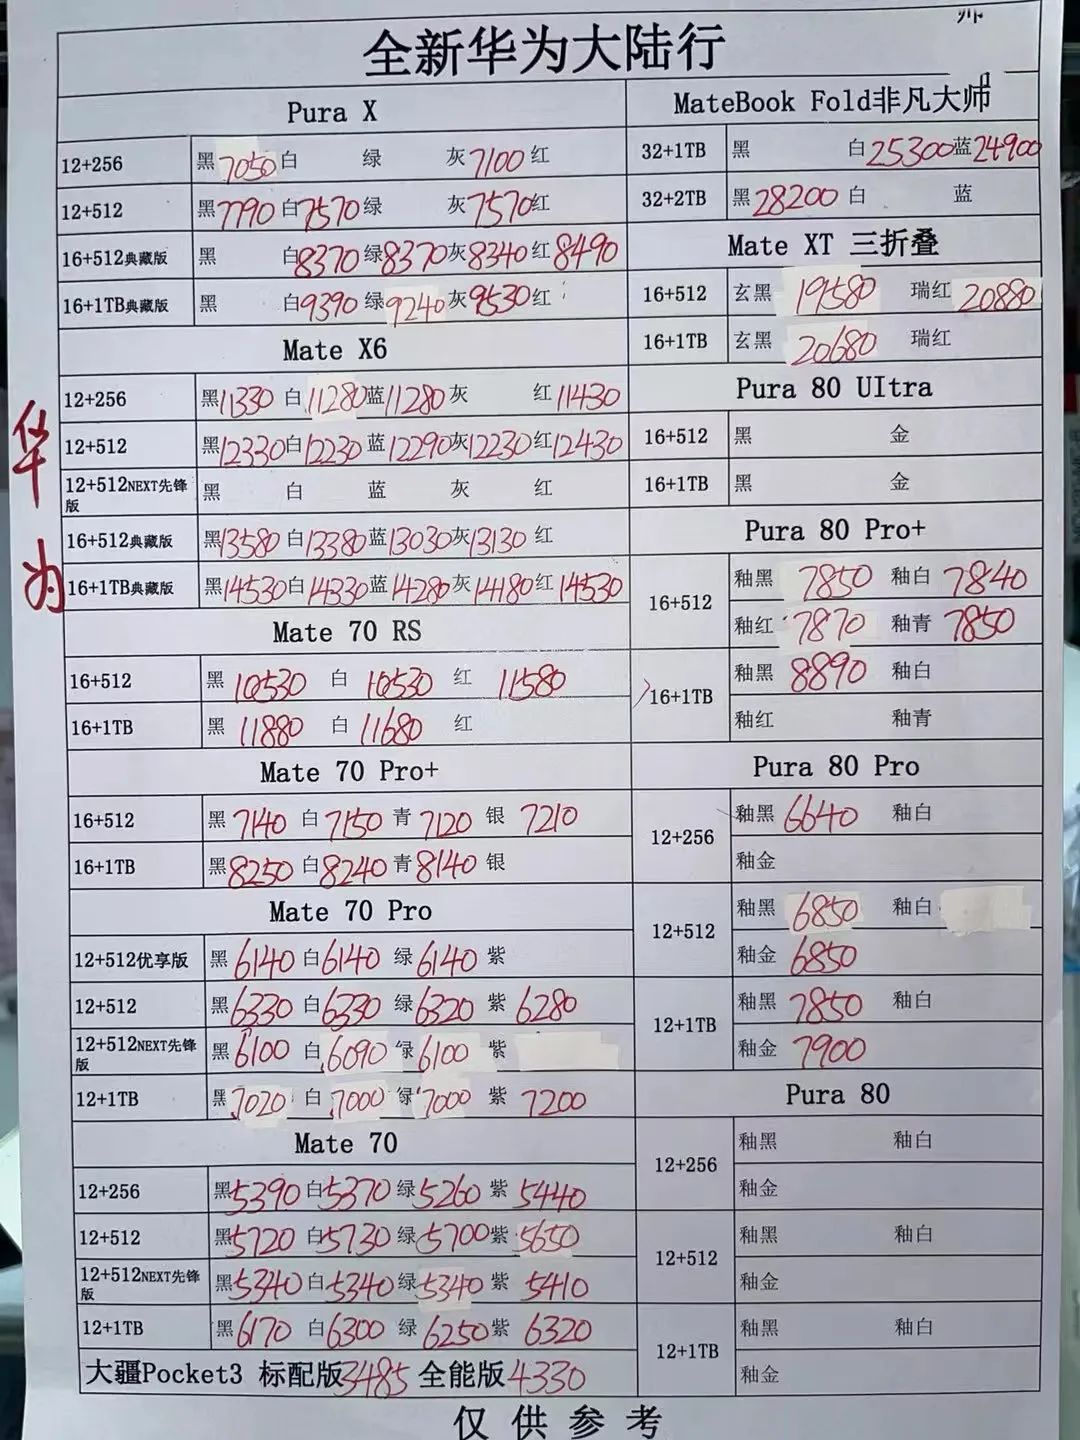 全新华为大陆行
Pura X
12+256 黑7050 白 绿 灰7100 红
12+512 黑7790 白7570 绿 灰7570 红
16+512典藏版 黑 白8370 绿8370 灰8340 红8490
16+1TB典藏版 黑 白9390 绿9240 灰9530 红
Mate X6
12+256 黑11330 白11280 蓝11280 灰 红11430
12+512 黑12330 白12230 蓝12290 灰12230 红12430
12+512NEXT先锋版 黑 白 蓝 灰 红
16+512典藏版 黑13580 白13380 蓝13030 灰13130 红
16+1TB典藏版 黑14530 白14330 蓝14280 灰14180 红14530
Mate 70 RS
16+512 黑 10530 白 10530 红 11580
16+1TB 黑 11880 白 11680 红
Mate 70 Pro+
16+512 黑 7140 白 7150 青 7120 银 7210
16+1TB 黑 8250 白 8240 青 8140 银
Mate 70 Pro
12+512优享版 黑 6140 白 6140 绿 6140 紫
12+512 黑 6330 白 6330 绿 6320 紫 6280
12+512NEXT先锋版 黑 6100 白 6090 绿 6100 紫
12+1TB 黑 7020 白 7000 绿 7000 紫 7200
Mate 70
12+256 黑5390 白5370 绿5260 紫 5440
12+512 黑5720 白5730 绿5700 紫 5650
12+512NEXT先锋版 黑5340 白5340 绿5340 紫 5410
12+1TB 黑6170 白6300 绿 6250 紫 6320
大疆Pocket3 标配版3485 全能版4330
MateBook Fold非凡大师
32+1TB 黑 白25300 蓝24900
32+2TB 黑28200 白 蓝
Mate XT 三折叠
16+512 玄黑 19580 瑞红 20880
16+1TB 玄黑 20680 瑞红
Pura 80 UItra
16+512 黑 金
16+1TB 黑 金
Pura 80 Pro+
16+512 釉黑 7850 釉白 7840
釉红 7870 釉青 7850
16+1TB 釉黑 8890 釉白
釉红 釉青
Pura 80 Pro
12+256 釉黑 6640 釉白
釉金
12+512 釉黑 6850 釉白
釉金 6850
12+1TB 釉黑 7850 釉白
釉金 7900
Pura 80
12+256 釉黑 釉白
釉金
12+512 釉黑 釉白
釉金
12+1TB 釉黑 釉白
釉金
仅供参考
华为